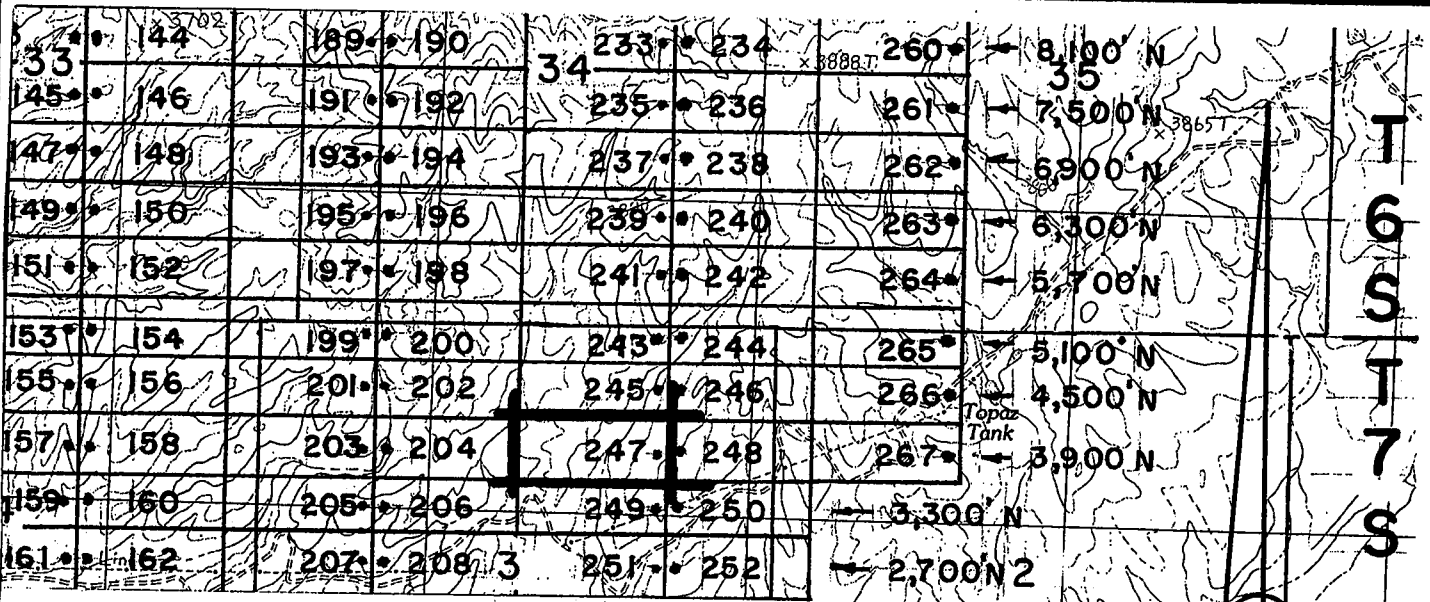 144 189 190 233 234 260 8,100' N
33 34 × 3888T 35
× 3702
145 146 191 192 235 236 261 7,500' N
× 3865T
147 148 193 194 237 238 262 6,900' N
149 150 195 196 239 240 263 6,300' N
151 152 197 198 241 242 264 5,700' N
153 154 199 200 243 244 265 5,100' N
155 156 201 202 245 246 266 4,500' N
Topaz
Tank
157 158 203 204 247 248 267 3,900' N
159 160 205 206 249 250 3,300' N
161 162 207 208 3 251 252 2,700' N 2
T
6
S
T
7
S